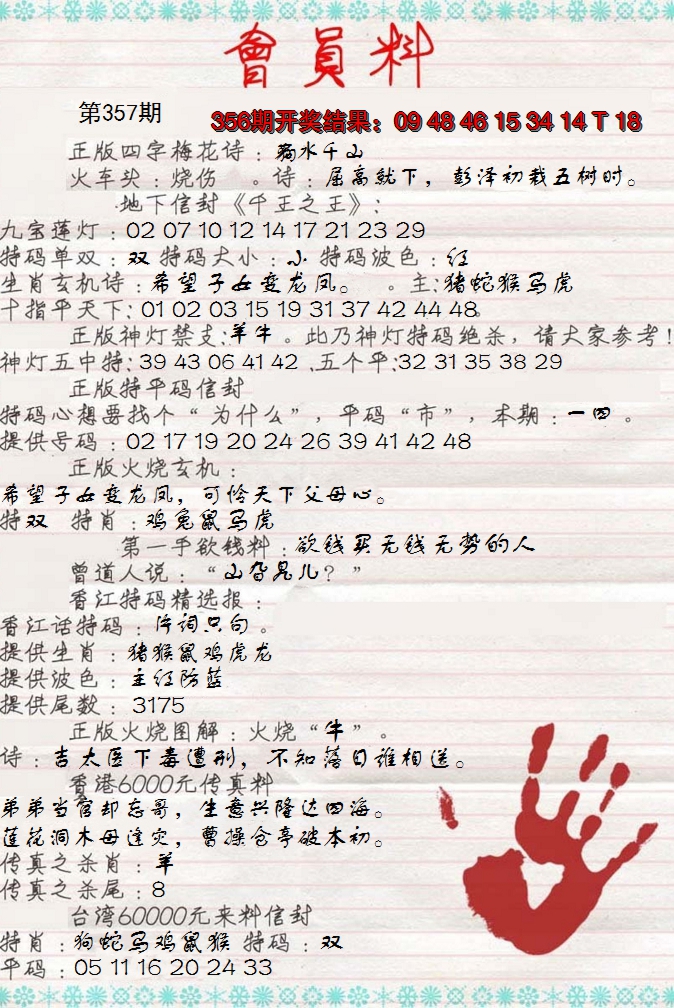 會員料
第357期
356期开奖结果：09 48 46 15 34 14 T 18
正版四字梅花诗：蒻水千山
火车头：烧伤 。诗：屈高就下，彭泽初栽五树时。
地下信封《千王之王》：
九宝莲灯：02 07 10 12 14 17 21 23 29
特码单双：双 特码大小：小 特码波色：红
生肖玄机诗：希望子女变龙凤。 。主：猪蛇猴马虎
十指平天下：01 02 03 15 19 31 37 42 44 48.
正版神灯禁支：羊牛。此乃神灯特码绝杀，请大家参考！
神灯五中特：39 43 06 41 42 .五个平：32 31 35 38 29
正版特平码信封
特码心想要找个“为什么”，平码“市”，本期：一四。
提供号码：02 17 19 20 24 26 39 41 42 48
正版火烧玄机：
希望子女变龙凤，可怜天下父母心。
特双 特肖：鸡兔鼠马虎
第一手欲钱料：欲钱买无钱无势的人
曾道人说：“山旮旯儿？”
香江特码精选报：
香江话特码：片词只句。
提供生肖：猪猴鼠鸡虎龙
提供波色：主红防蓝
提供尾数：3175
正版火烧图解：火烧“牛”。
诗：吉太医下毒遭刑，不知落日谁相送。
香港6000元传真料
弟弟当官却忘哥，生意兴隆达四海。
莲花洞木母逢灾，曹操仓亭破本初。
传真之杀肖：羊
传真之杀尾：8
台湾60000元来料信封
特肖：狗蛇马鸡鼠猴 特码：双
平码：05 11 16 20 24 33